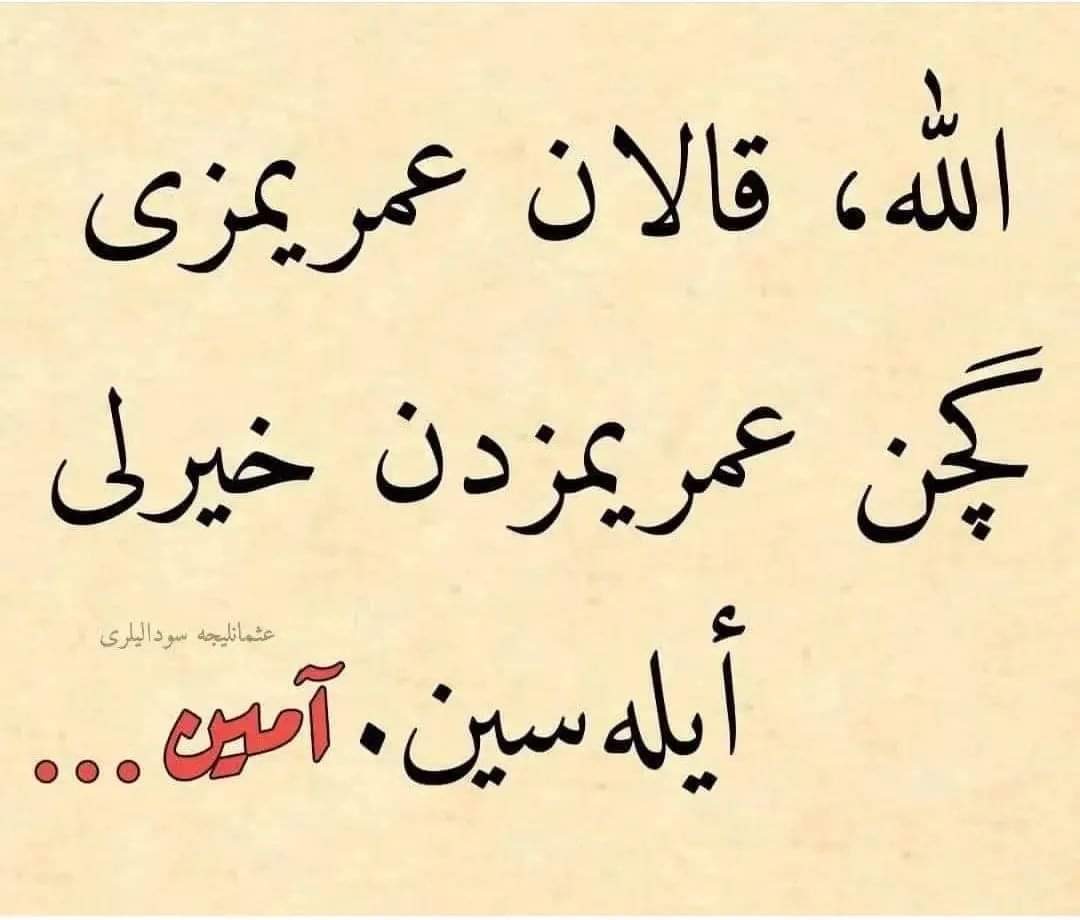 الله، قالان عمریمزی
گچن عمریمزدن خیرلی
أیله سین. آمین...
عثمانلیجه سودالیلری